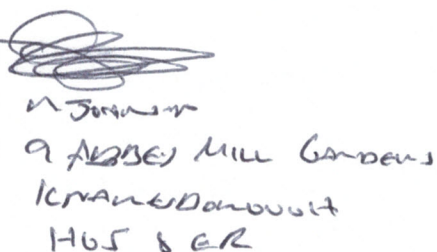 9 ABBEY MILL GARDENS
KNARESBOROUGH
HG5 8ER